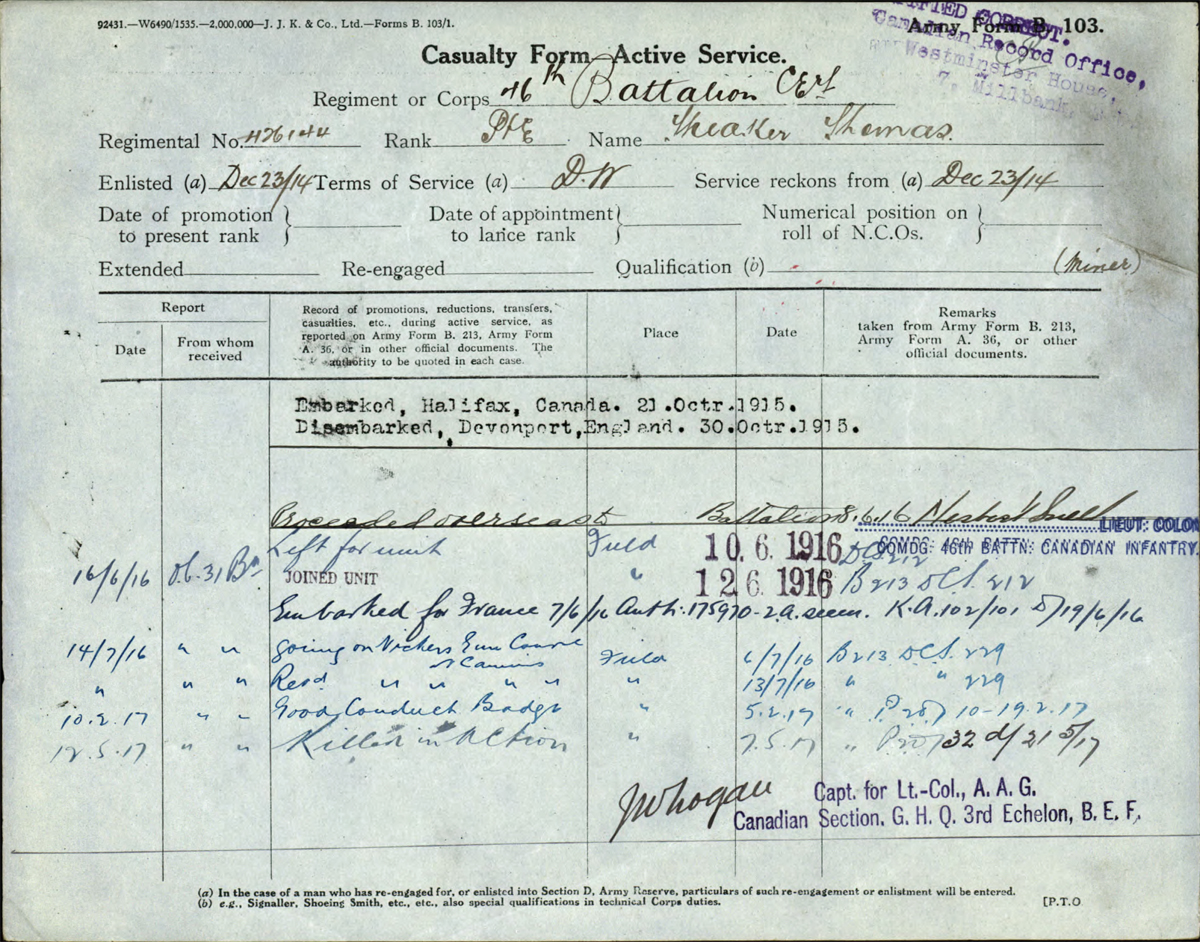 92431.—W6490/1535.—2,000,000—J. J. K. & Co., Ltd.—Forms B. 103/1.
Army Form B. 103.
CORRECT.
Canadian Record Office,
Westminster House,
7, Millbank,
Casualty Form Active Service.
Regiment or Corps 46th Battalion CEF
Regimental No. 426144 Rank Pte Name Speaker Thomas.
Enlisted (a) Dec 23/14 Terms of Service (a) D.W Service reckons from (a) Dec 23/14
Date of promotion to present rank } Date of appointment to lance rank } Numerical position on roll of N.C.Os. }
Extended Re-engaged Qualification (b) (Miner)
Report
Date From whom received
Record of promotions, reductions, transfers, casualties, etc., during active service, as reported on Army Form B. 213, Army Form A. 36, or in other official documents. The authority to be quoted in each case.
Place
Date
Remarks taken from Army Form B. 213, Army Form A. 36, or other official documents.
Embarked, Halifax, Canada. 21.Octr.1915.
Disembarked, Devonport,England. 30.Octr.1915.
Proceeded overseas Battalion 8.6.16
LIEUT: COLON
COMDG: 46th BATTN: CANADIAN INFANTRY.
Left for unit Field 10.6.1916 212
16/6/16 O.C. 31 Bn JOINED UNIT " 12 6 1916 B213 DCS. 212
Embarked for France 7/6/16 Auth: 175970-2.A. K.A. 102/101 19/6/16
14/7/16 " " going on Vickers Gun Course Field 6/7/16 B213 DCS. 229
" " " " " " " " 13/7/16 " " 229
10.2.17 " " Good Conduct Badge " 5.2.17 " 10-19.2.17
12.5.17 " " Killed in Action " 7.5.17 " 32 d/21 5/17
Capt. for Lt.-Col., A. A. G.
Canadian Section. G. H. Q. 3rd Echelon, B. E. F.
(a) In the case of a man who has re-engaged for, or enlisted into Section D, Army Reserve, particulars of such re-engagement or enlistment will be entered.
(b) e.g., Signaller, Shoeing Smith, etc., etc., also special qualifications in technical Corps duties.
[P.T.O